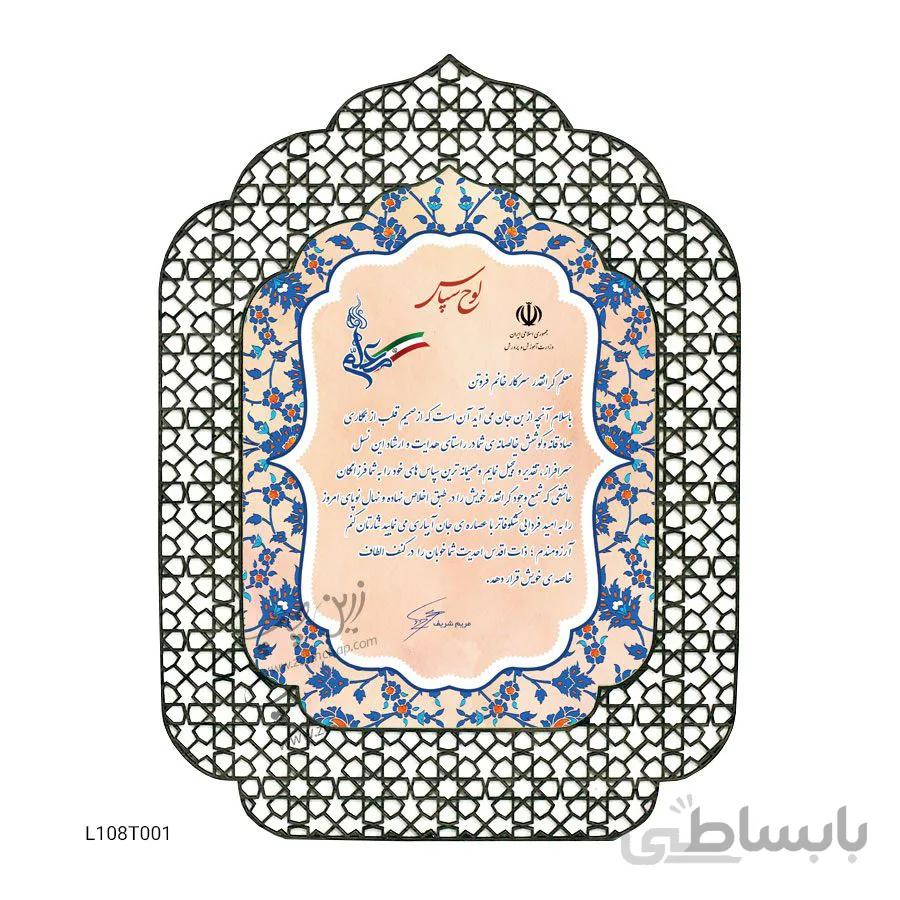 لوح سپاس
جمهوری اسلامی ایران
وزارت آموزش و پرورش
معلم گرانقدر سرکار خانم فروتن
باسلام آنچه از بن جان می آید آن است که از صمیم قلب از همکاری
صادقانه و کوشش خالصانه ی شما در راستای هدایت و ارشاد این نسل
سرافراز، تقدیر و تجلیل نمایم و صمیمانه ترین سپاس های خود را به شما فرزانگان
عاشقی که شمع وجود گرانقدر خویش را در طبق اخلاص نهاده و نهال نوپای امروز
را به امید فردایی شکوفاتر با عصاره ی جان آبیاری می نمایید نثارتان کنم
آرزومندم ؛ ذات اقدس احدیت شما خوبان را در کنف الطاف
خاصه ی خویش قرار دهد.
مریم شریف
زرین چاپ
L108T001
بابساطی